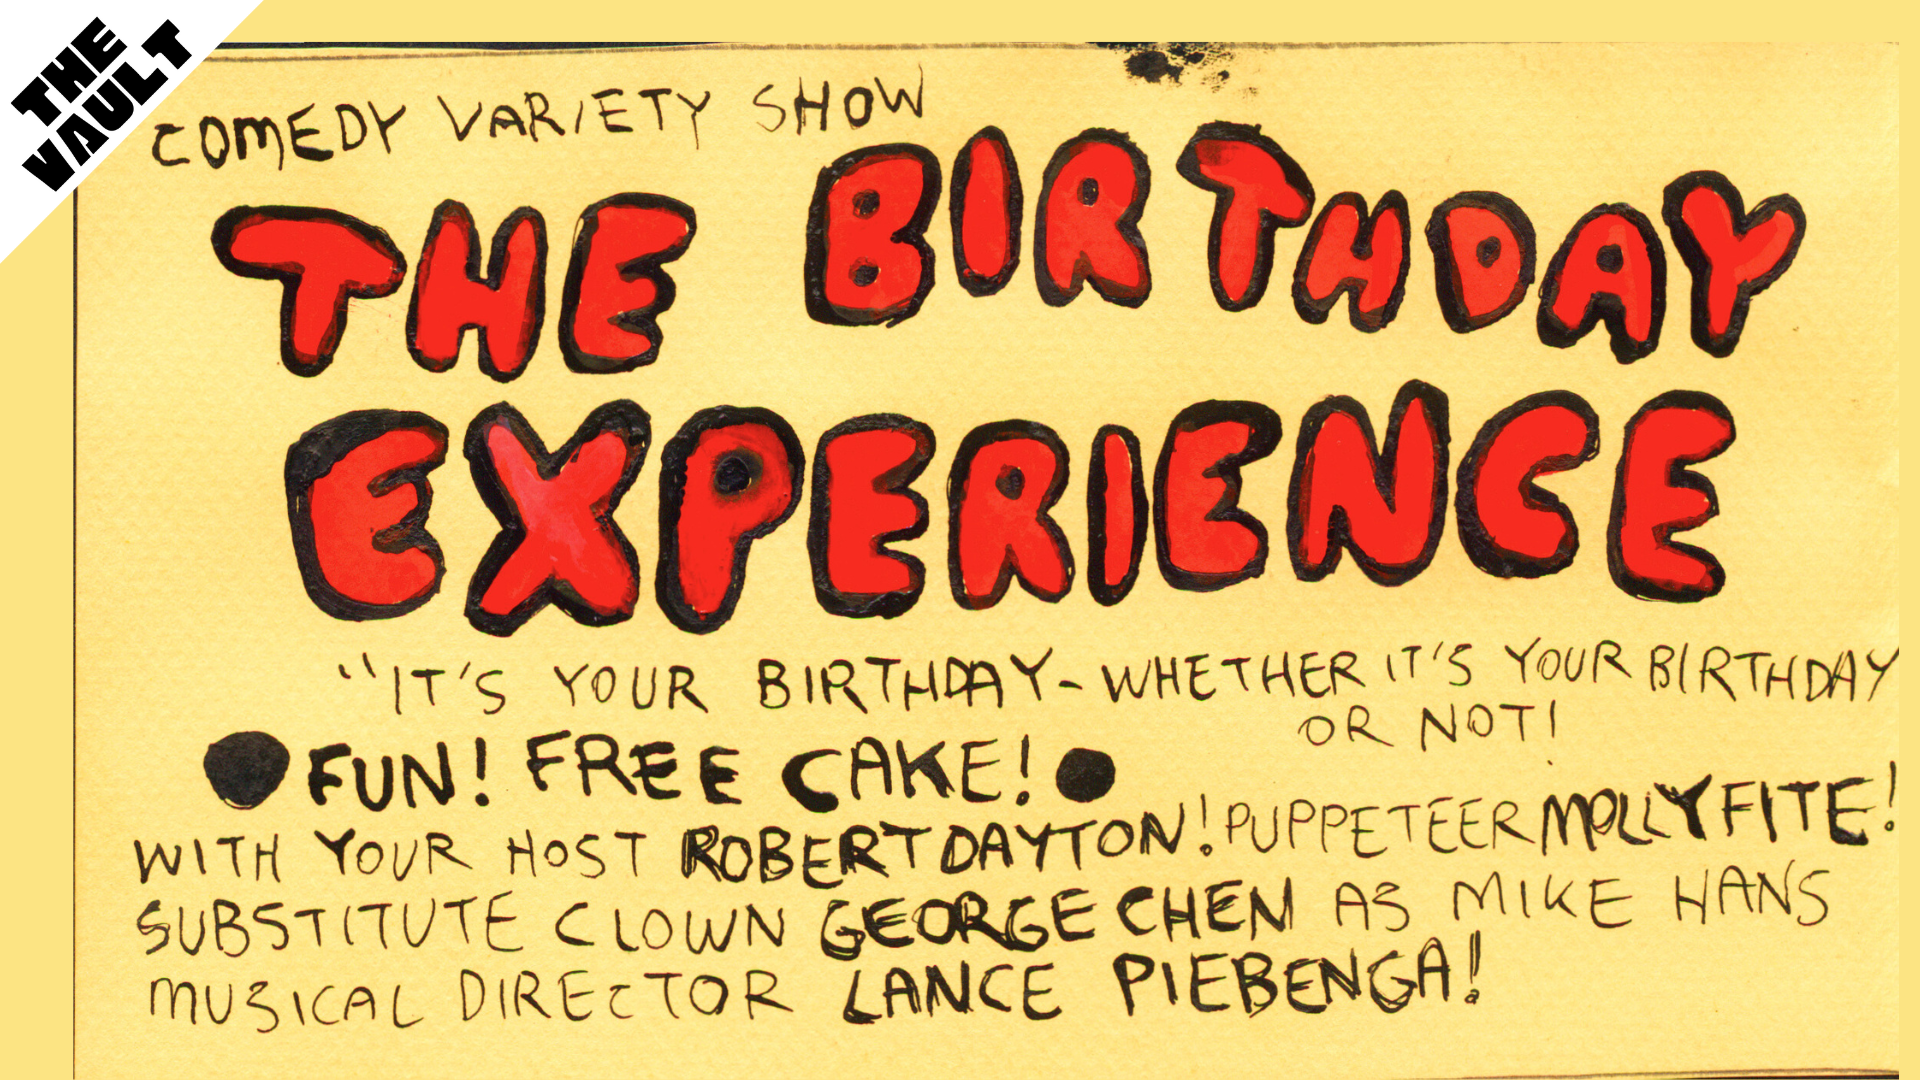 THE
VAULT
COMEDY VARIETY SHOW
THE BIRTHDAY
EXPERIENCE
"IT'S YOUR BIRTHDAY-WHETHER IT'S YOUR BIRTHDAY
OR NOT!
FUN! FREE CAKE!
WITH YOUR HOST ROBERT DAYTON! PUPPETEER MOLLY FITE!
SUBSTITUTE CLOWN GEORGE CHEN AS MIKE HANS
MUSICAL DIRECTOR LANCE PIEBENGA!